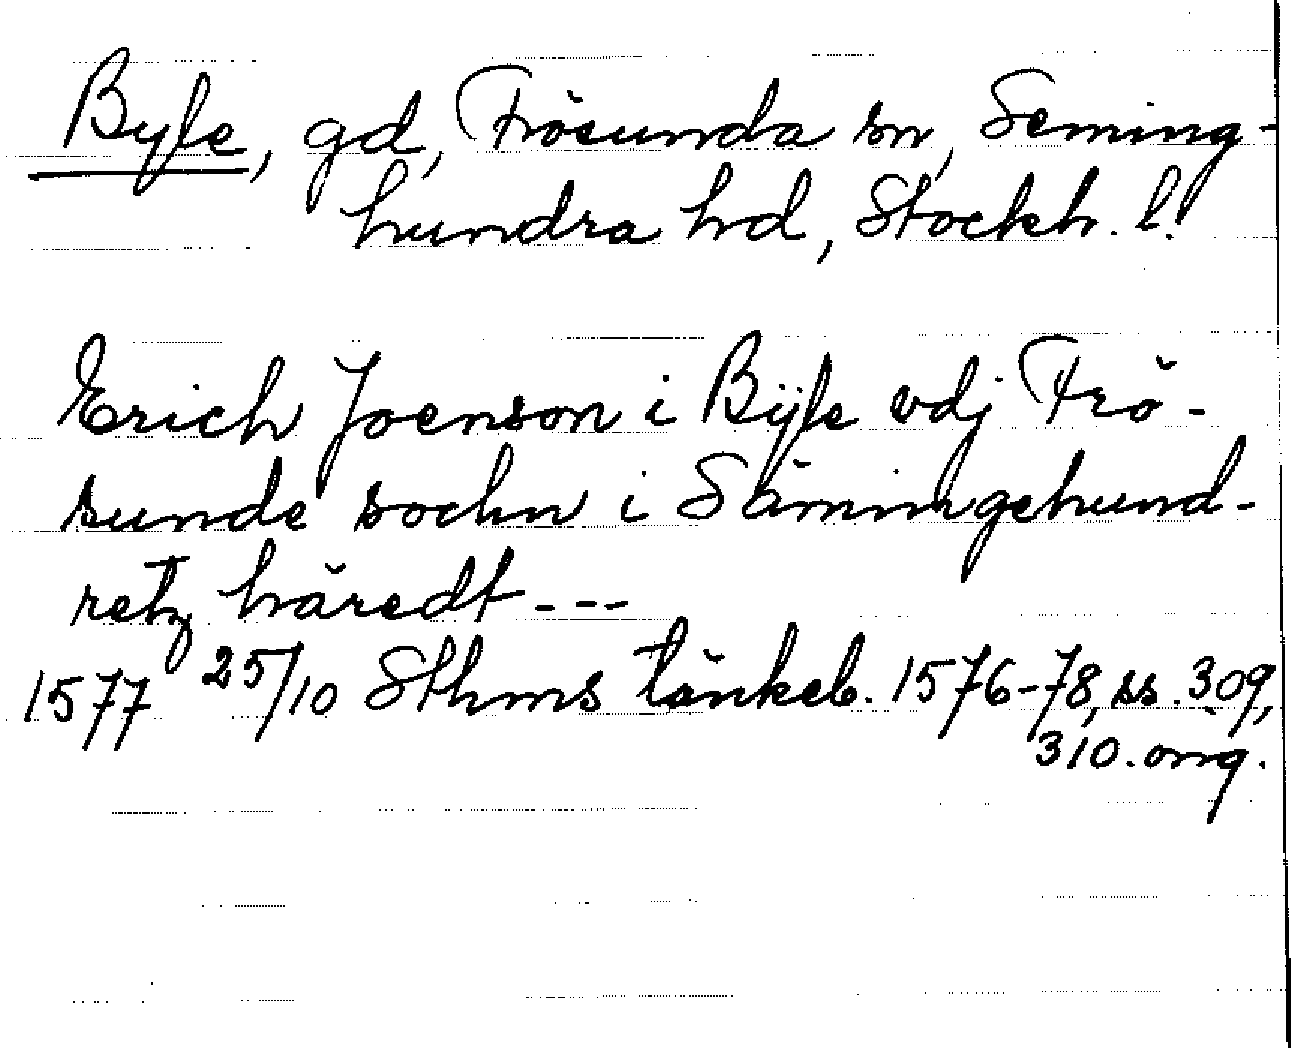 Byle, gd, Frösunda sn, Seming-
hundra hd, Stockh. l.
Erich Joenson i Bÿle vdj Frö-
sunde sochn i Säminge hund-
retz häredt ---
1577 25/10 Sthms tänkeb. 1576-78, ss. 309,
310. orig.